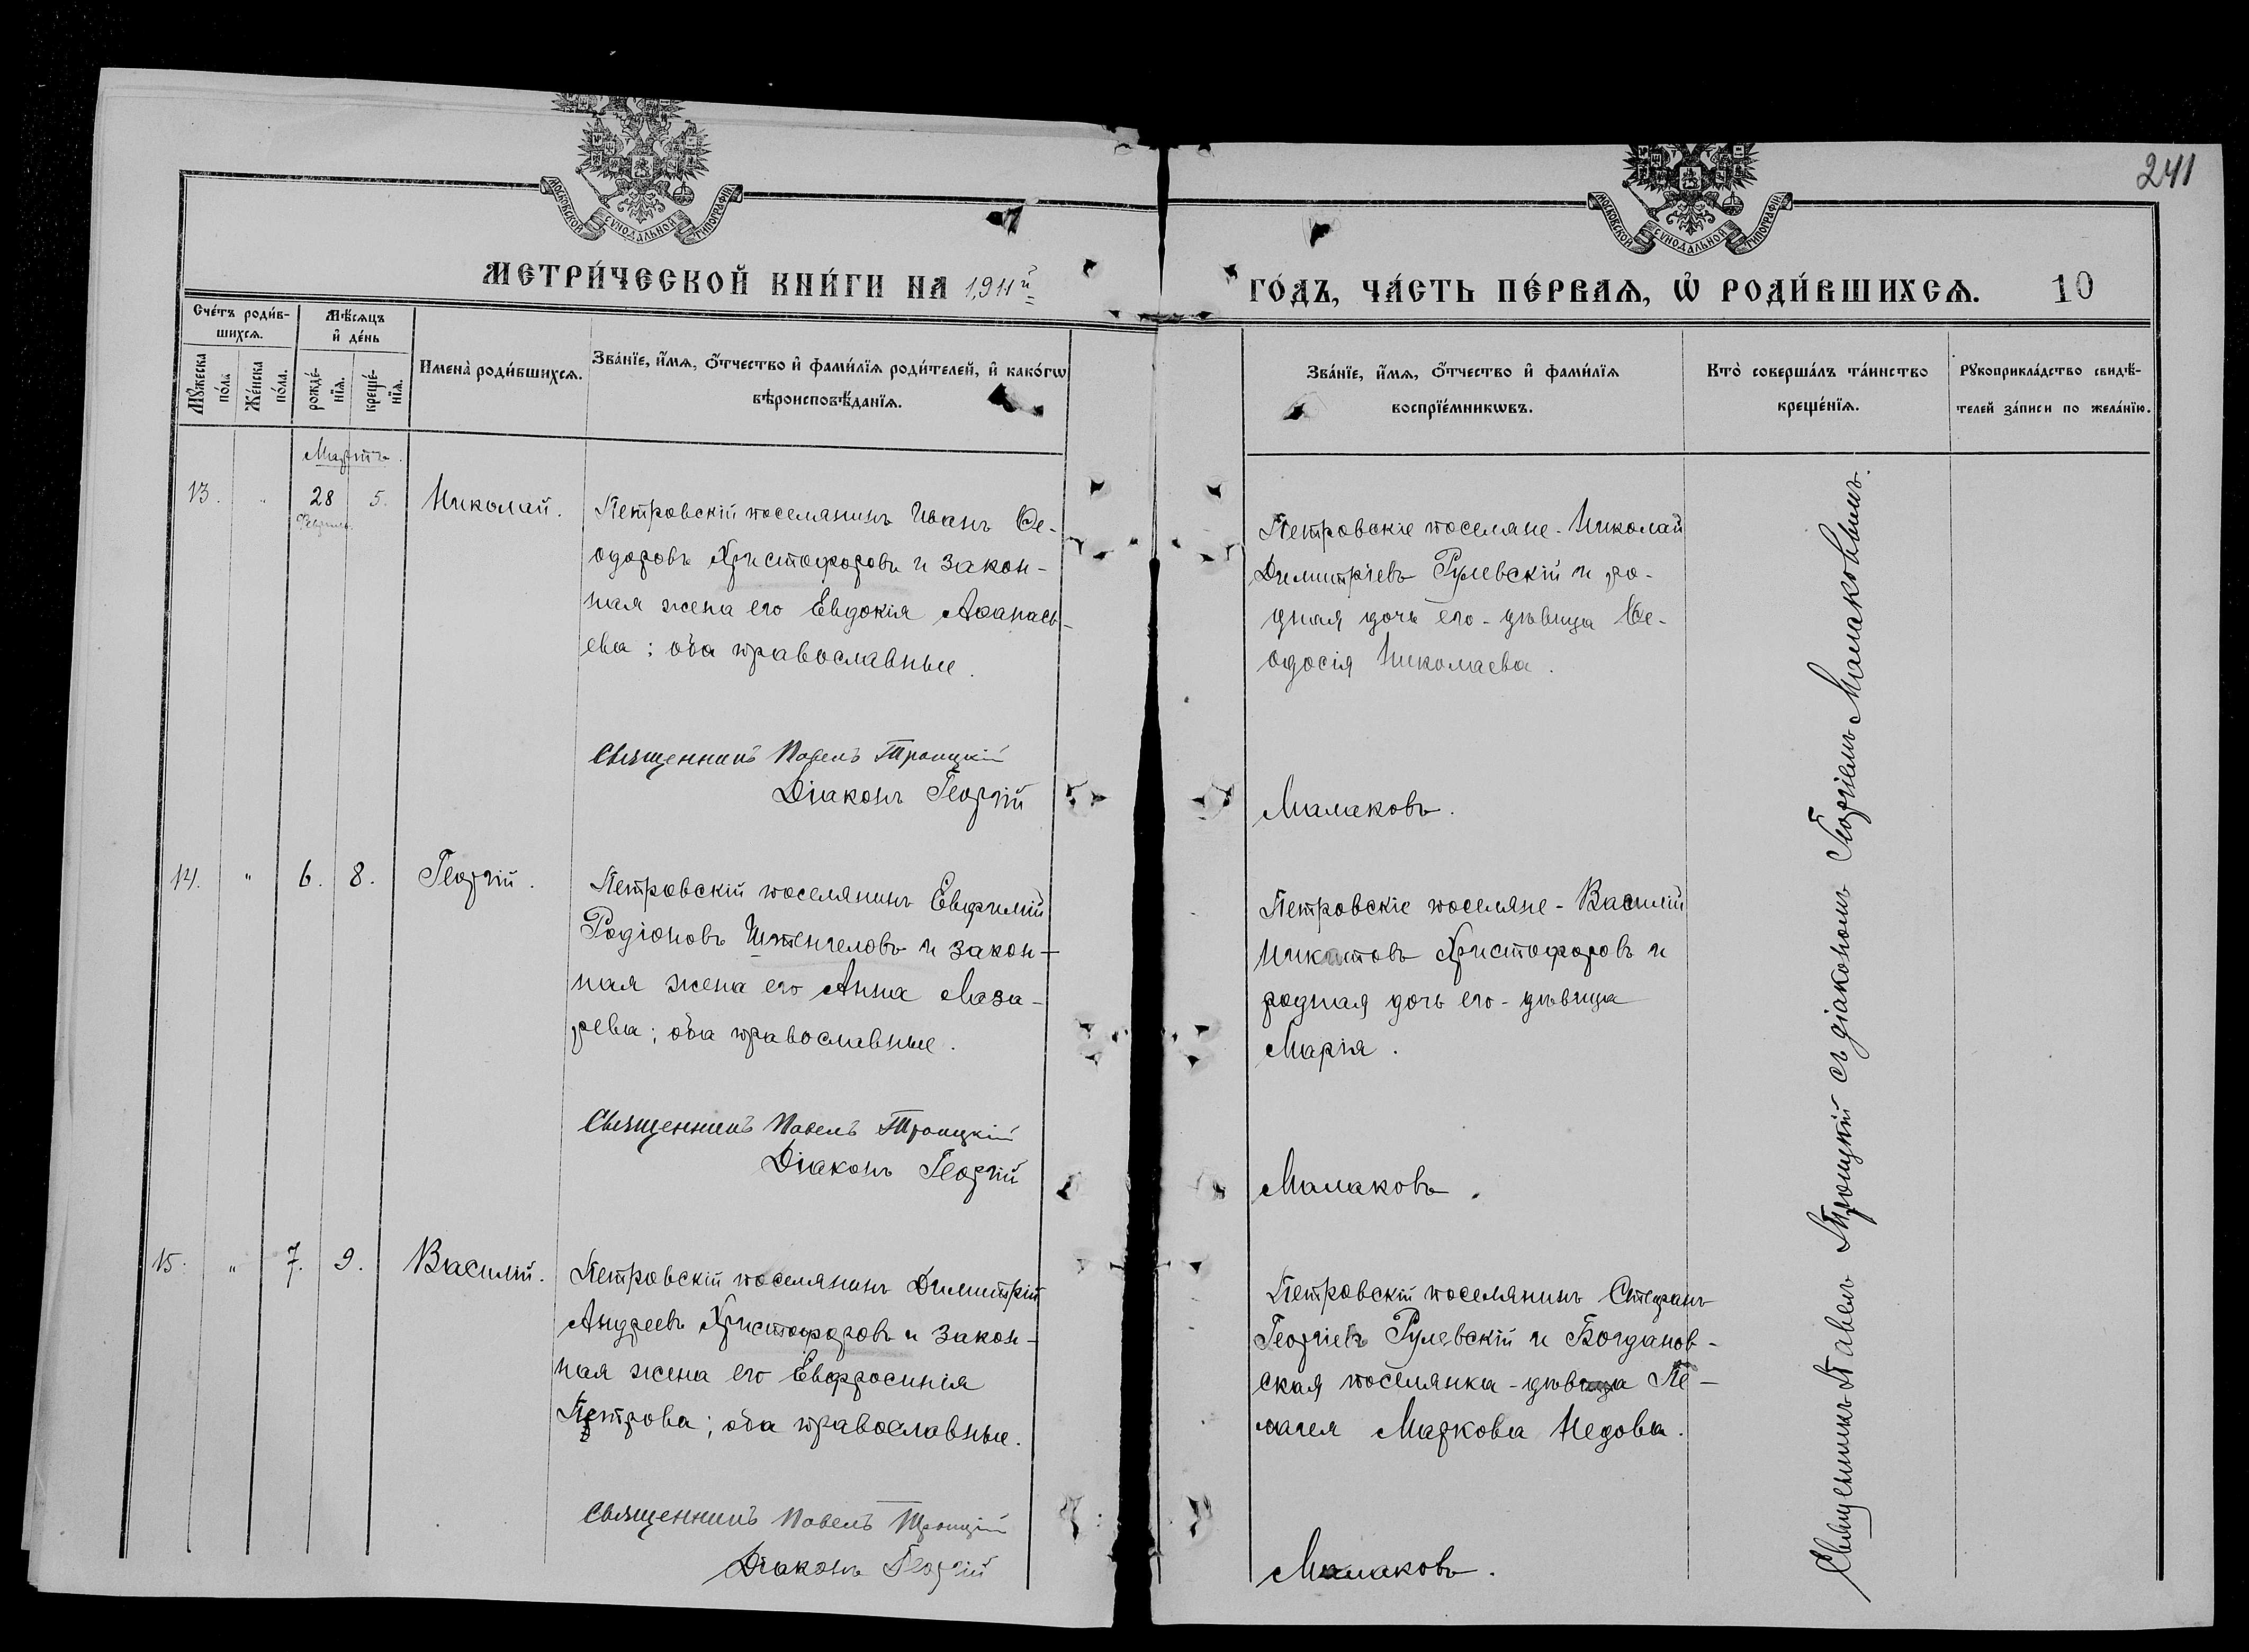 241
МОСКОВСКОЙ СУНОДАЛЬНОЙ ТИПОГРАФІИ
МОСКОВСКОЙ СУНОДАЛЬНОЙ ТИПОГРАФІИ
МЕТРИ́ЧЕСКОЙ КНИ́ГИ НА 1911й
ГО́ДЪ, ЧА́СТЬ ПЕ́РВАѦ, Ѽ РОДИ́ВШИХСѦ. 10
Сче́тъ роди́в-
шихсѧ.
Мꙋжеска по́ла
Же́нска по́ла.
Мѣ́сѧцъ
и҆ де́нь
рожде́-
нїѧ.
креще́-
нїѧ.
И҆мена̀ роди́вшихсѧ.
Зва́нїе, и҆́мѧ, ѻ҆́тчество и҆ фами́лїѧ роди́телей, и҆ како́гѡ
вѣроисповѣ́данїѧ.
Зва́нїе, и҆́мѧ, ѻ҆́тчество и҆ фами́лїѧ
воспрїе́мникѡвъ.
Кто̀ соверша́лъ та́инство
креще́нїѧ.
Рꙋкоприкла́дство свидѣ́-
телей за́писи по жела́нїю.
Мартъ.
13. " 28 5. Николай.
Феврал.
Петровскій поселянинъ Иванъ Ѳе-
одоровъ Христофоровъ и закон-
ная жена его Евдокія Аѳанась-
ева; оба православные.
Священникъ Павелъ Троицкій
Діаконъ Георгій
Петровскіе поселяне - Николай
Димитріевъ Рулевскій и ро-
дная дочь его - дѣвица Ѳе-
одосія Николаева.
Малаковъ.
14. " 6. 8. Георгій.
Петровскій поселянинъ Евфимій
Родіоновъ Штенгеловъ и закон-
ная жена его Анна Лаза-
рева; оба православные.
Священникъ Павелъ Троицкій
Діаконъ Георгій
Петровскіе поселяне - Василій
Никитовъ Христофоровъ и
родная дочь его - дѣвица
Марія.
Малаковъ.
15. " 7. 9. Василій.
Петровскій поселянинъ Димитрій
Андреевъ Христофоровъ и закон-
ная жена его Евфросинія
Петрова; оба православные.
Священникъ Павелъ Троицкій
Діаконъ Георгій
Петровскій поселянинъ Стефанъ
Георгіевъ Рулевскій и Богданов-
ская поселянка - дѣвица Пе-
лагея Маркова Недова.
Малаковъ.
Священникъ Павелъ Троицкій съ діакономъ Георгіемъ Малаковымъ.